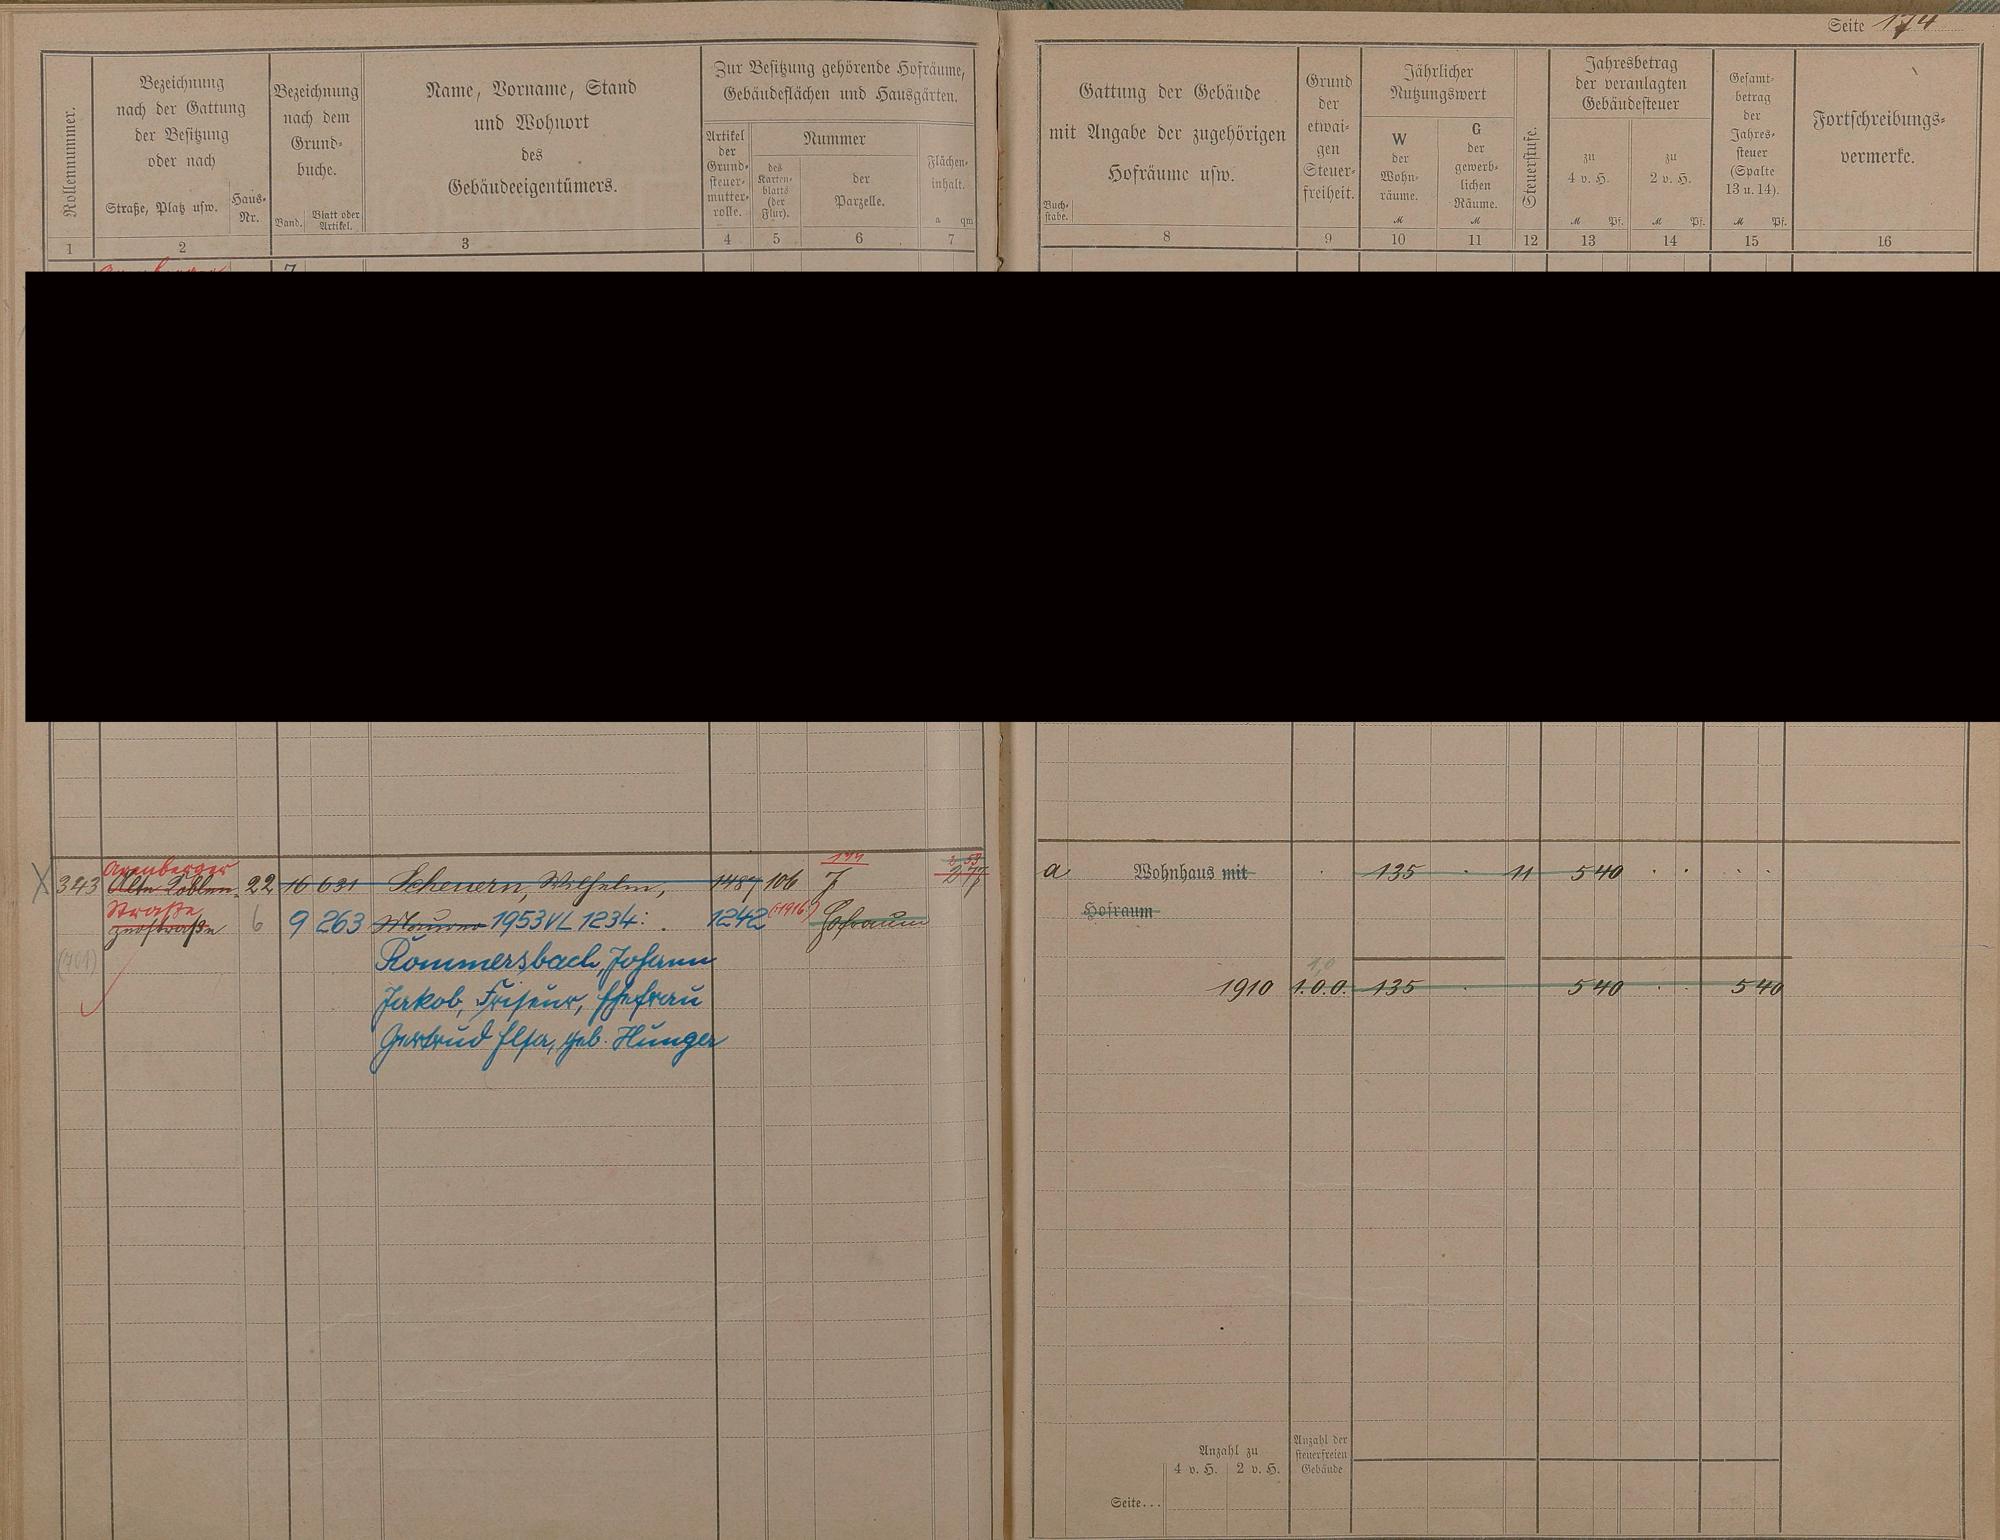 Seite 174
Rollennummer.
Bezeichnung
nach der Gattung
der Besitzung
oder nach
Straße, Platz usw.
Haus-
Nr.
Bezeichnung
nach dem
Grund-
buche.
Band.
Blatt oder
Artikel.
Name, Vorname, Stand
und Wohnort
des
Gebäudeeigentümers.
Zur Besitzung gehörende Hofräume,
Gebäudeflächen und Hausgärten.
Artikel
der
Grund-
steuer-
mutter-
rolle.
Nummer
des
Karten-
blatts
(der
Flur).
der
Parzelle.
Flächen-
inhalt.
a qm
Gattung der Gebäude
mit Angabe der zugehörigen
Hofräume usw.
Buch-
stabe.
Grund
der
etwai-
gen
Steuer-
freiheit.
Jährlicher
Nutzungswert
W
der
Wohn-
räume.
M
G
der
gewerb-
lichen
Räume.
M
Steuerstufe.
Jahresbetrag
der veranlagten
Gebäudesteuer
zu
4 v. H.
M Pf.
zu
2 v. H.
M Pf.
Gesamt-
betrag
der
Jahres-
steuer
(Spalte
13 u. 14).
M Pf.
Fortschreibungs-
vermerke.
1 2 3 4 5 6 7 8 9 10 11 12 13 14 15 16
Arenberger
343 Alte Koblen- 22 16 631 Scheuern, Wilhelm, 1487 106
a Wohnhaus mit 135 11 5 40
Straße
zerstraße 6 9 263 Maurer 1953 VL 1234: 1242 (:1916:) Hofraum
Hofraum
(701) Rommersbach, Johann
Jakob, Friseur, Ehefrau
1910 1.0.0. 135 5 40 5 40
Gertrud Elsa, geb. Hunger
Anzahl zu
4 v. H. 2 v. H.
Anzahl der
steuerfreien
Gebäude
Seite...